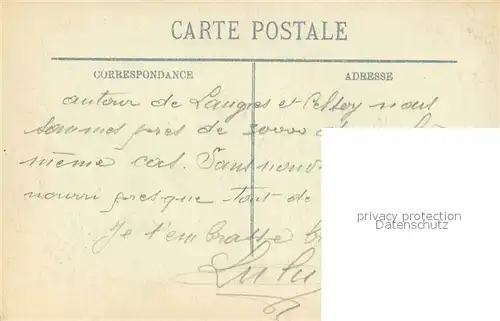 CARTE POSTALE
CORRESPONDANCE
ADRESSE
autour de Langres et nous
sommes près de 30000
même cas. Sans
nourri presque tout de
Je t'embrasse
Lulu
privacy protection
Datenschutz